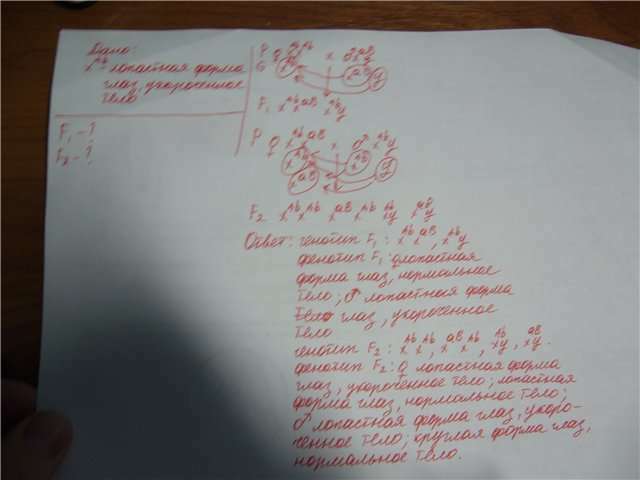 Дано:
X^Ab - лопастная форма
глаз, укороченное
тело
F₁ - ?
F₂ - ?
P ♀ X^Ab X^Ab x ♂ X^aB y
G X^Ab X^aB y
F₁ X^Ab X^aB X^Ab y
P ♀ X^Ab X^aB x ♂ X^Ab y
X^Ab X^Ab y
X^aB
F₂ X^Ab X^Ab X^aB X^Ab X^Ab y X^aB y
Ответ: генотип F₁: X^Ab X^aB, X^Ab y
фенотип F₁: ♀ лопастная
форма глаз, нормальное
тело; ♂ лопастная форма
глаз, укороченное
тело
генотип F₂: X^Ab X^Ab, X^aB X^Ab, X^Ab y, X^aB y.
фенотип F₂: ♀ лопастная форма
глаз, укороченное тело; лопастная
форма глаз, нормальное тело;
♂ лопастная форма глаз, укоро-
ченное тело; круглая форма глаз,
нормальное тело.